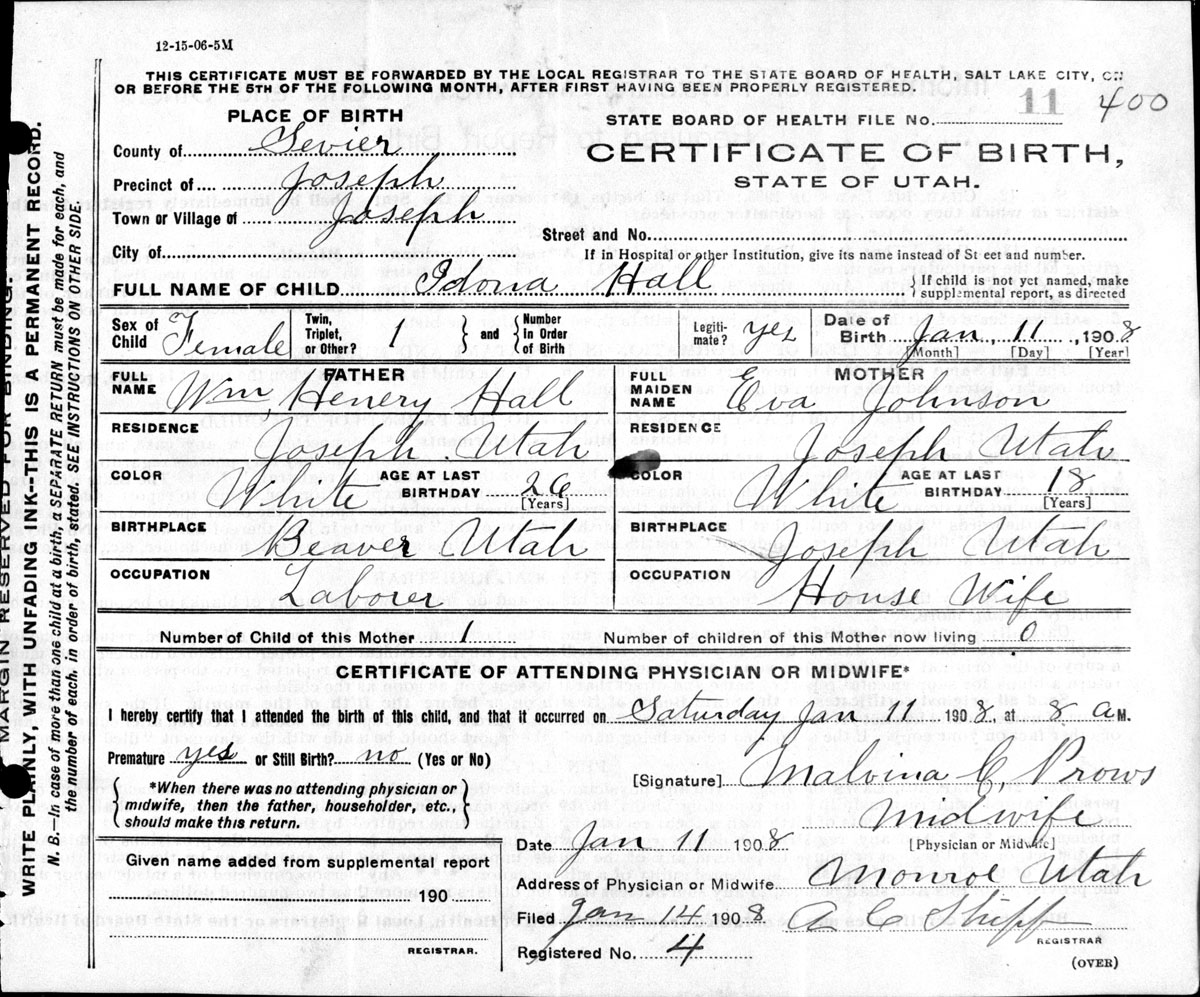 12-15-06-5M
THIS CERTIFICATE MUST BE FORWARDED BY THE LOCAL REGISTRAR TO THE STATE BOARD OF HEALTH, SALT LAKE CITY, ON
OR BEFORE THE 5TH OF THE FOLLOWING MONTH, AFTER FIRST HAVING BEEN PROPERLY REGISTERED.
PLACE OF BIRTH
STATE BOARD OF HEALTH FILE No. 11 400
County of Sevier
CERTIFICATE OF BIRTH,
Precinct of Joseph
STATE OF UTAH.
Town or Village of Joseph
Street and No.
City of
If in Hospital or other Institution, give its name instead of Street and number.
FULL NAME OF CHILD Idona Hall
{If child is not yet named, make
supplemental report, as directed
Sex of Child Female
Twin, Triplet, or Other? 1 } and { Number In Order of Birth
Legiti-mate? yes
Date of Birth Jan, 11, 1908
[Month] [Day] [Year]
FATHER
FULL NAME Wm, Henery Hall
MOTHER
FULL MAIDEN NAME Eva Johnson
RESIDENCE Joseph. Utah
RESIDENCE Joseph Utah
COLOR White AGE AT LAST BIRTHDAY 26 [Years]
COLOR White AGE AT LAST BIRTHDAY 18 [Years]
BIRTHPLACE Beaver Utah
BIRTHPLACE Joseph Utah
OCCUPATION Laborer
OCCUPATION House Wife
Number of Child of this Mother 1
Number of children of this Mother now living 0
CERTIFICATE OF ATTENDING PHYSICIAN OR MIDWIFE*
I hereby certify that I attended the birth of this child, and that it occurred on Saturday Jan 11 1908, at 8 A M.
Premature yes or Still Birth? no (Yes or No)
[Signature] Malvina C, Prows
*When there was no attending physician or
midwife, then the father, householder, etc.,
should make this return.
Midwife
[Physician or Midwife]
Date Jan 11 1908
Given name added from supplemental report
190
REGISTRAR.
Address of Physician or Midwife Monroe Utah
Filed Jan 14 1908
REGISTRAR
Registered No. 4
(OVER)
MARGIN RESERVED FOR BINDING.
WRITE PLAINLY, WITH UNFADING INK--THIS IS A PERMANENT RECORD.
N. B.—In case of more than one child at a birth, a SEPARATE RETURN must be made for each, and
the number of each, in order of birth, stated. SEE INSTRUCTIONS ON OTHER SIDE.